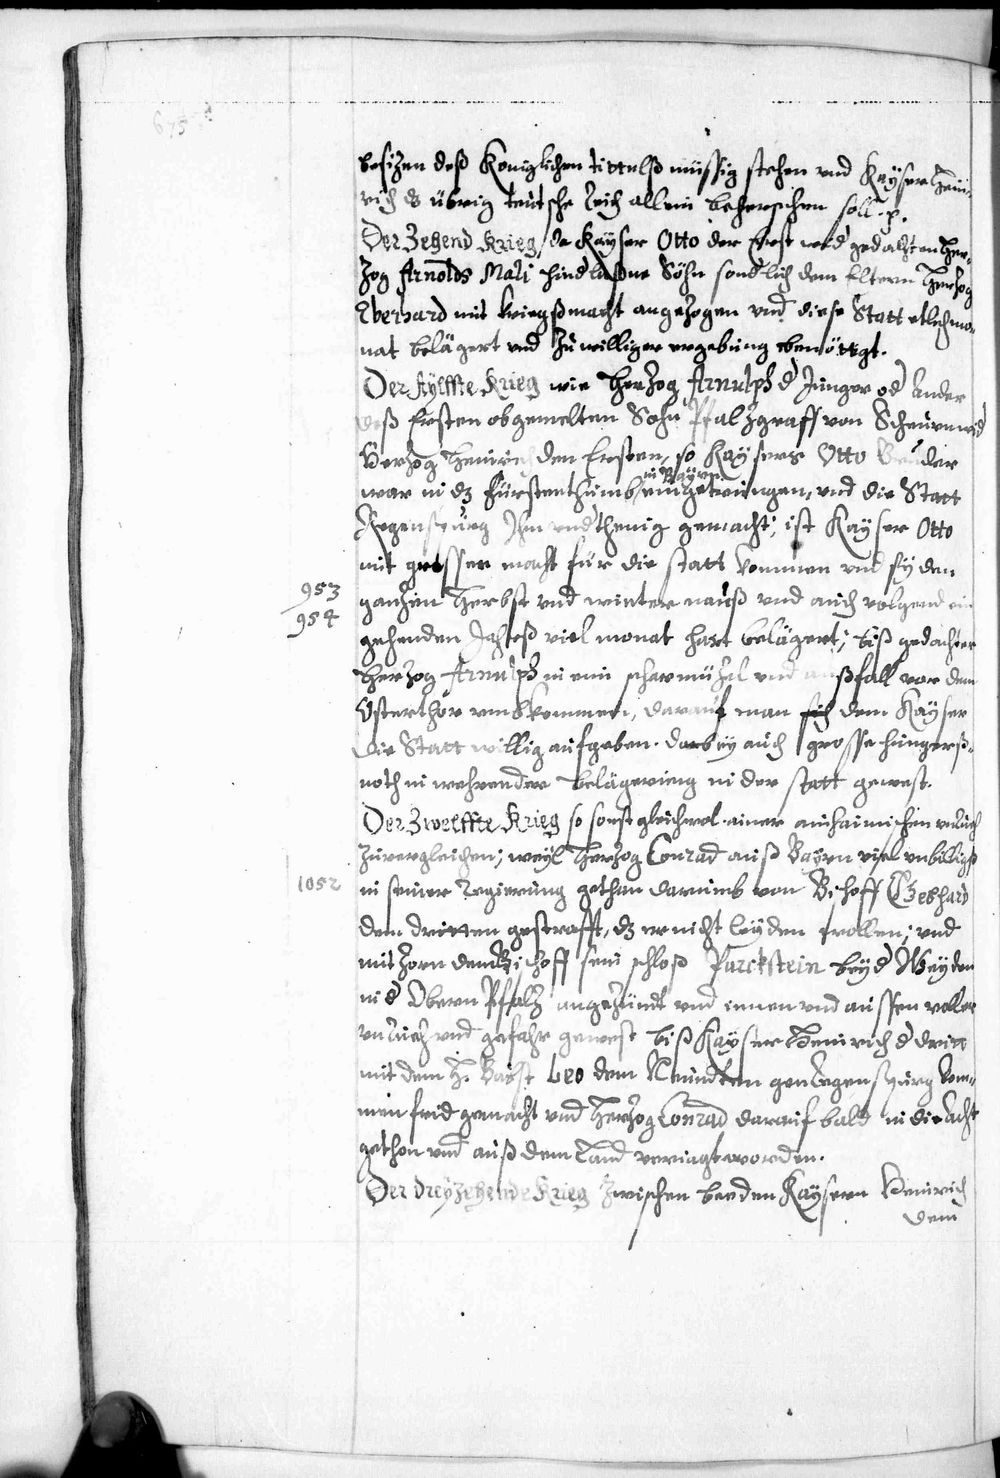 675
besizen deß Königlichen tittulß müssig stehen vnd Kayser Hein-
rich ds übrig teutsche Reich allein beherschen soll. p.
Der Zehend Krieg, da Kayser Otto der Erst wid gedachten Her-
zog Arnolds Mali hindlaßne Söhn sondlich dem Eltern Herzog
Eberhard mit kriegßmacht angezogen vnd diese Statt etlich mo-
nat belägert vnd zu williger ergebung benöttgt.
Der Aylffte Krieg wie Herzog Arnulph d Jünger od Ander
deß Ersten obgemelten Sohn Pfalzgraff von Scheurn wid
Herzog Heinrich den Ersten, so Kaysers Otto Bruder
war in dz Fürstenthumb in Bayrn eingetrungen, vnd die Statt
Regenspurg Ihm vndthenig gemacht; ist Kayser Otto
mit grosser macht für die statt kommen vnd sy den
953
ganzen Herbst vnd winter nauß vnd auch volgend ein
954
gehenden Jahrß viel monat hart belägert; biß gedachter
Herzog Arnulph in eim scharmüzel vnd außfall vor dem
Osterthor vmbkommen, darauf man sich dem Kayser
die Statt willig aufgeben. darbey auch grosse hungerß-
noth in wehrender belägerung in der statt gewest.
Der Zwelffte Krieg so sonst gleichwol einer ainhaimischen vnruh
zuvergleichen; weyl Herzog Conrad auß Bayrn viel vnbilligß
1052
in seiner Regierung gethan darumb von Bischoff Gebhard
dem dritten gestrafft, dz er nicht leyden wollen; vnd
mit zorn dem Bischoff sein schloß Parckstein bey d Weyden
in d Obern Pfalz angezündt vnd innen vnd aussen voller
vnruh vnd gefahr gewest biß Kayser Heinrich d dritt
mit dem H. Babst Leo dem Neundten gen Regenspurg kom-
men frid gemacht vnd Herzog Conrad darauf bald in die Acht
gethon vnd auß dem Land veriagt worden.
Der dreyzehende Krieg zwischen beeden Kaysern Heinrich
dem